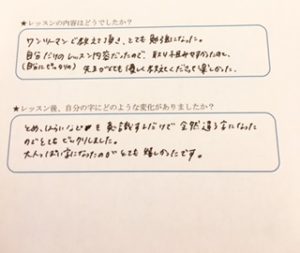 ★レッスンの内容はどうでしたか？
ワンツーマンで教えて頂き、とても勉強になった。
自分だけのレッスン内容だったので、取り組みやすかったし、
(自分にぴったりの) 先生がとても優しく教えてくださって楽しかった。
★レッスン後、自分の字にどのような変化がありましたか？
とめ、はらいなども意識するだけで全然違う字になった
のがとてもビックリしました。
大人っぽい字になったのがとても嬉しかったです。